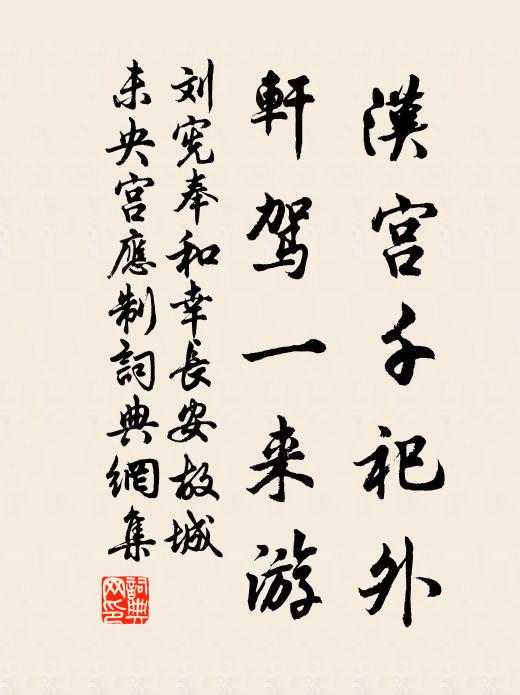 漢宮千祀外
軒駕一来游
刘宪奉和幸長安故城
未央宫應制詞典網集
詞典网印